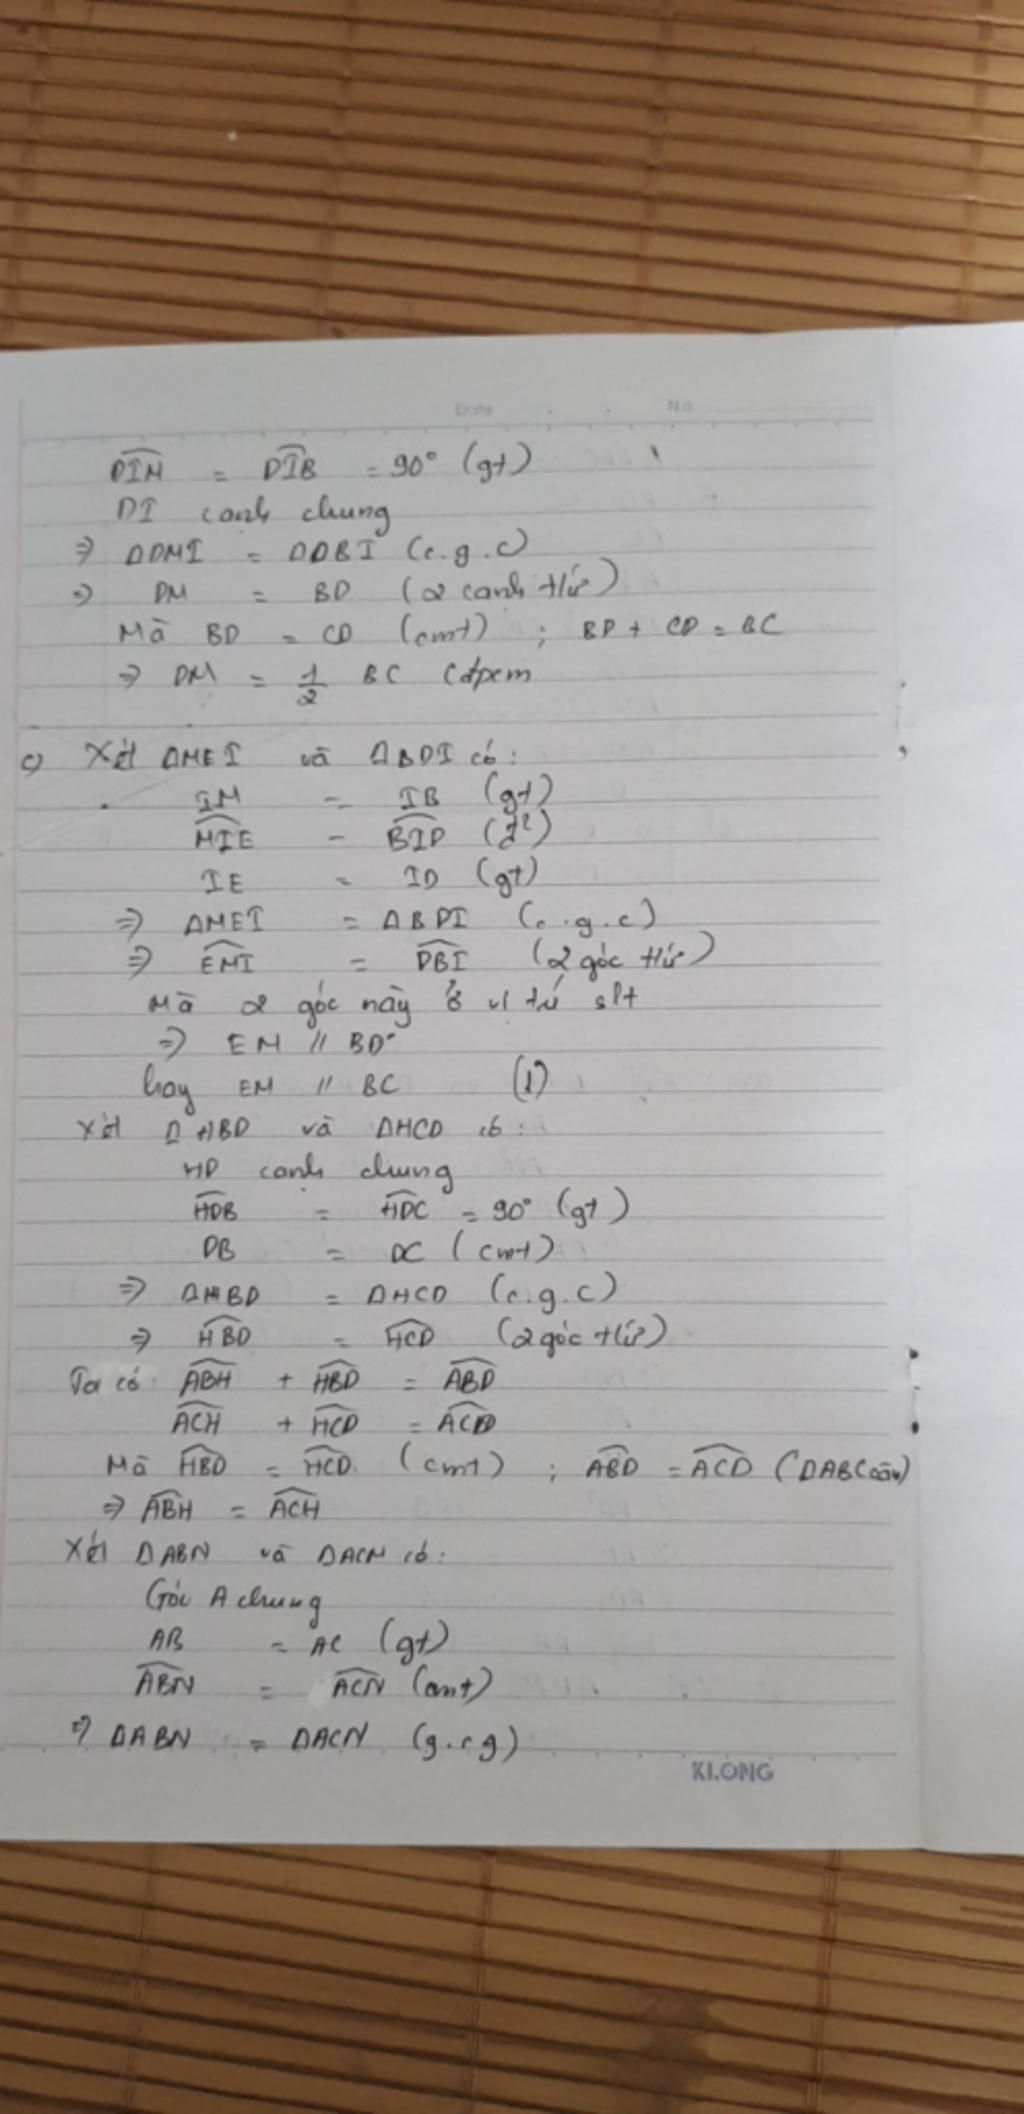 Date . . No
DIM = DIB = 90° (gt)
DI canh chung
⇒ ΔDMI = ΔDBI (c.g.c)
⇒ DM = BD (2 canh tứ)
Mà BD = CD (cmt) ; BD + CD = BC
⇒ DM = 1/2 BC (đpcm
c) Xét ΔMEI và ΔBDI có:
IM = IB (gt)
MIE = BID (đ²)
IE = ID (gt)
⇒ ΔMEI = ΔBDI (c.g.c)
⇒ EMI = DBI (2 góc tứ)
Mà 2 góc này ở vị trí slt
⇒ EM // BD
hay EM // BC (1)
Xét ΔHBD và ΔHCD có:
HD canh chung
HDB = HDC = 90° (gt)
DB = DC (cmt)
⇒ ΔHBD = ΔHCD (c.g.c)
⇒ HBD = HCD (2 góc tứ)
Ta có ABH + HBD = ABD
ACH + HCD = ACD
Mà HBD = HCD (cmt) ; ABD = ACD (ΔABC cân)
⇒ ABH = ACH
Xét ΔABN và ΔACN có:
Góc A chung
AB = AC (gt)
ABN = ACN (cmt)
⇒ ΔABN = ΔACN (g.c.g)
KLONG